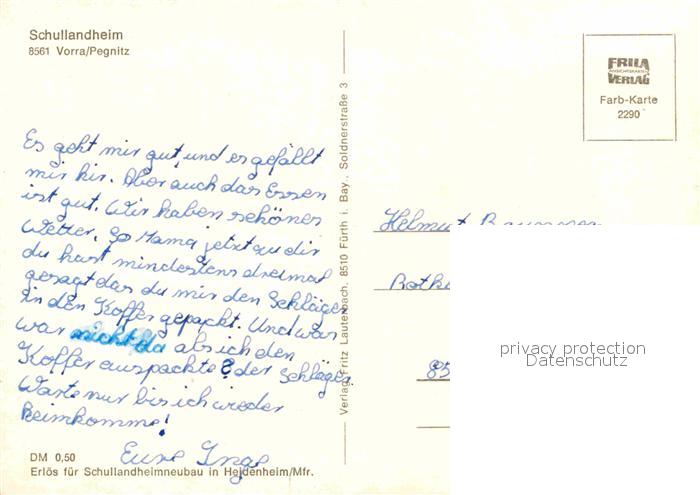 Schullandheim
8561 Vorra/Pegnitz
Es geht mir gut, und es gefällt
mir hir. Aber auch das Essen
ist gut. Wir haben schönes
Wetter. So Mama jetzt zu dir
du hast mindestens dreimal
gesagt das du mir den Schläger
in den Koffer gepackt. Und was
war nicht da als ich den
Koffer auspackte? der Schläger
Warte nur bis ich wieder
heimkomme!
Eure Inge
DM 0,50
Erlös für Schullandheimneubau in Heidenheim/Mfr.
Verlag Fritz Lauterbach, 8510 Fürth i. Bay., Soldnerstraße 3
FRILA
ANSICHTSKARTEN
VERLAG
Farb-Karte
2290
Helmut
Rothe
85
privacy protection
Datenschutz